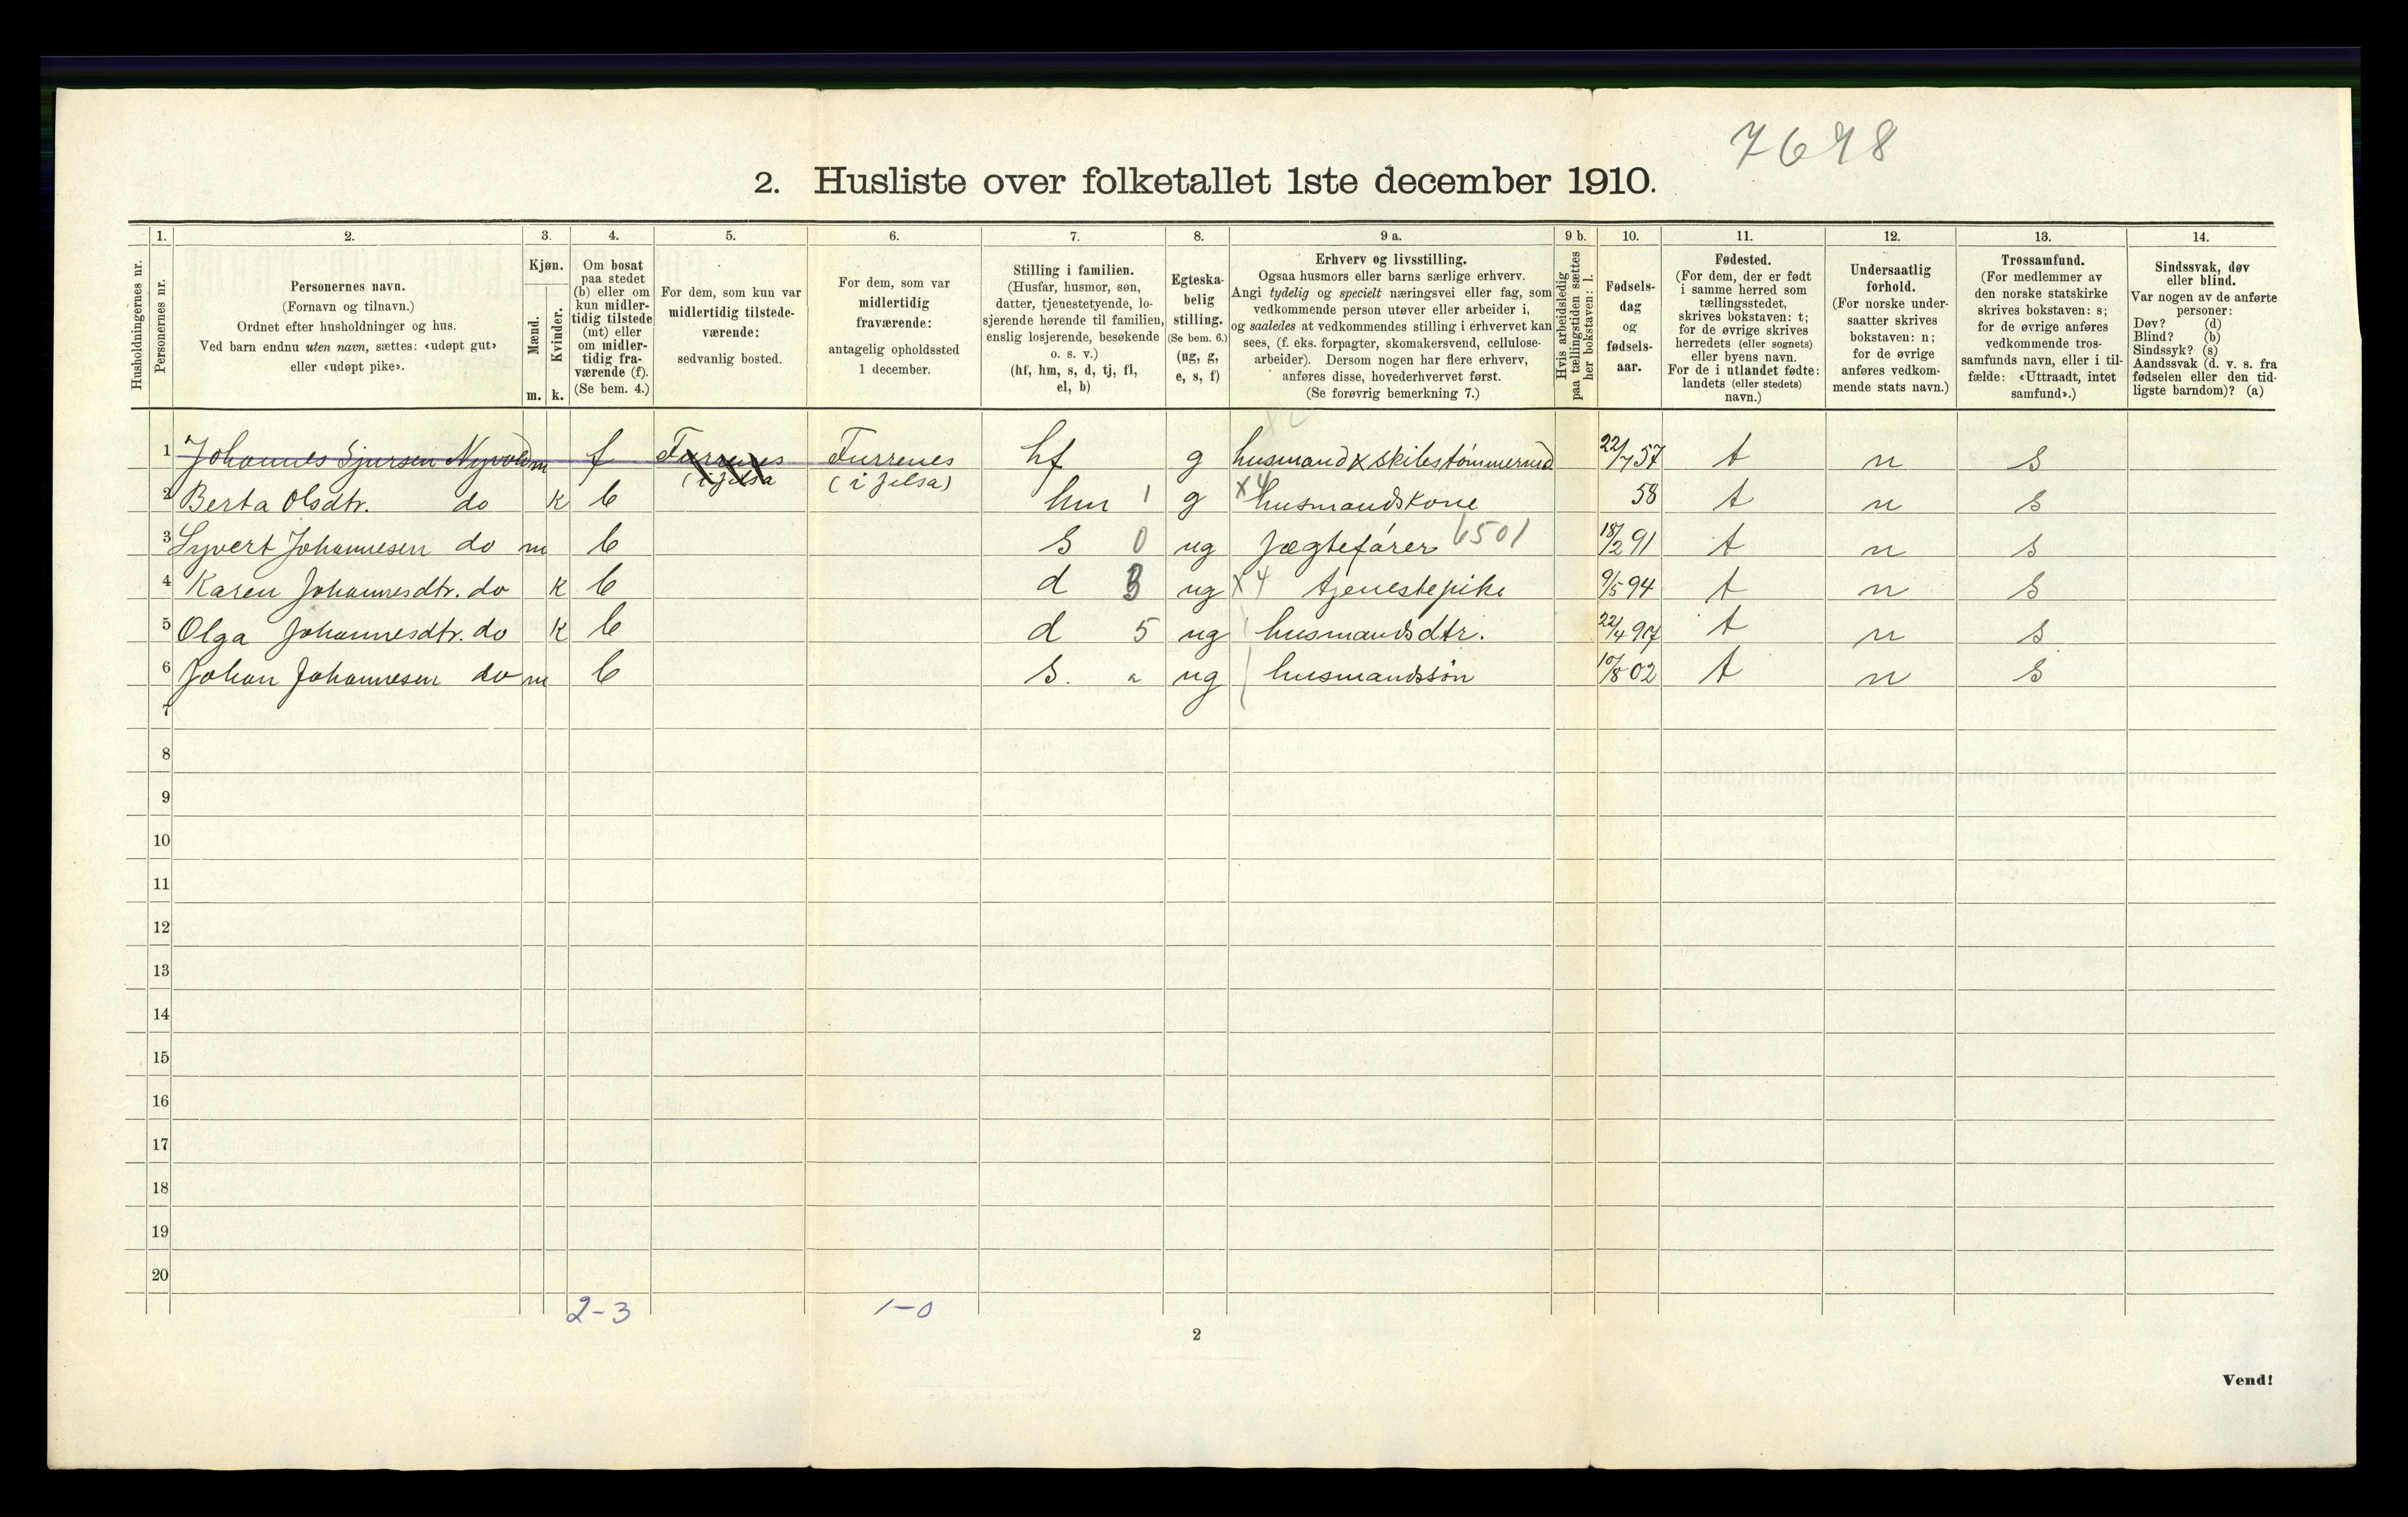 7678
2. Husliste over folketallet 1ste december 1910.
1. 2. 3. 4. 5. 6. 7. 8. 9 a. 9 b. 10. 11. 12. 13. 14.
Husholdningernes nr.
Personernes nr.
Personernes navn.
(Fornavn og tilnavn.)
Ordnet efter husholdninger og hus.
Ved barn endnu uten navn, sættes: «udøpt gut»
eller «udøpt pike».
Kjøn.
Mænd.
Kvinder.
m. k.
Om bosat
paa stedet
(b) eller om
kun midler-
tidig tilstede
(mt) eller
om midler-
tidig fra-
værende (f).
(Se bem. 4.)
For dem, som kun var
midlertidig tilstede-
værende:
sedvanlig bosted.
For dem, som var
midlertidig
fraværende:
antagelig opholdssted
1 december.
Stilling i familien.
(Husfar, husmor, søn,
datter, tjenestetyende, lo-
sjerende hørende til familien,
enslig losjerende, besøkende
o. s. v.)
(hf, hm, s, d, tj, fl,
el, b)
Egteska-
belig
stilling.
(Se bem. 6.)
(ug, g,
e, s, f)
Erhverv og livsstilling.
Ogsaa husmors eller barns særlige erhverv.
Angi tydelig og specielt næringsvei eller fag, som
vedkommende person utøver eller arbeider i,
og saaledes at vedkommendes stilling i erhvervet kan
sees, (f. eks. forpagter, skomakersvend, cellulose-
arbeider). Dersom nogen har flere erhverv,
anføres disse, hovederhvervet først.
(Se forøvrig bemerkning 7.)
Hvis arbeidsledig
paa tællingstiden sættes
her bokstaven: l.
Fødsels-
dag
og
fødsels-
aar.
Fødested.
(For dem, der er født
i samme herred som
tællingsstedet,
skrives bokstaven: t;
for de øvrige skrives
herredets (eller sognets)
eller byens navn.
For de i utlandet fødte:
landets (eller stedets)
navn.)
Undersaatlig
forhold.
(For norske under-
saatter skrives
bokstaven: n;
for de øvrige
anføres vedkom-
mende stats navn.)
Trossamfund.
(For medlemmer av
den norske statskirke
skrives bokstaven: s;
for de øvrige anføres
vedkommende tros-
samfunds navn, eller i til-
fælde: «Uttraadt, intet
samfund».)
Sindssvak, døv
eller blind.
Var nogen av de anførte
personer:
Døv? (d)
Blind? (b)
Sindssyk? (s)
Aandssvak (d. v. s. fra
fødselen eller den tid-
ligste barndom)? (a)
1 Johannes Sjursen Nyvold m f Furrenes Furrenes hf g husmand x skibstømmermd 22/7 57 t n s
(i jelsa (i jelsa)
2 Berta Olsdtr. do k b hm 1 g x4 husmandskone 58 t n s
3 Syvert Johannesen do m b s 0 ug Jægtefører 6501 18/2 91 t n s
4 Karen Johannesdtr. do k b d 3 ug x4 tjenestepike 9/5 94 t n s
5 Olga Johannesdtr. do k b d 5 ug husmandsdtr. 22/4 97 t n s
6 Johan Johannesen do m b s. a ug husmandssøn 10/8 02 t n s
7
8
9
10
11
12
13
14
15
16
17
18
19
20
2-3 1-0
2
Vend!